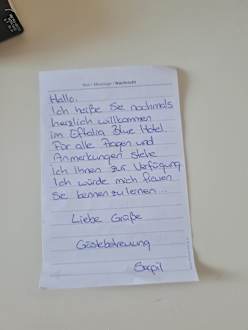 Hallo,
Ich heiße Sie nochmals
herzlich willkommen
im Eftalia Blue Hotel.
Für alle Fragen und
Anmerkungen stehe
Ich Ihnen zur Verfügung
Ich würde mich freuen
Sie kennenzulernen...
Liebe Grüße
Gästebetreuung